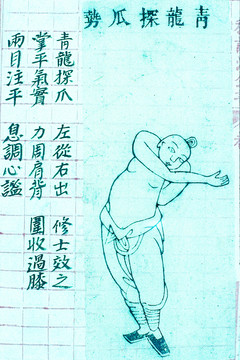 青龍探爪勢
青龍探爪 左從右出 修士效之
掌平氣實 力周肩背 圍收過膝
兩目注平 息調心謐